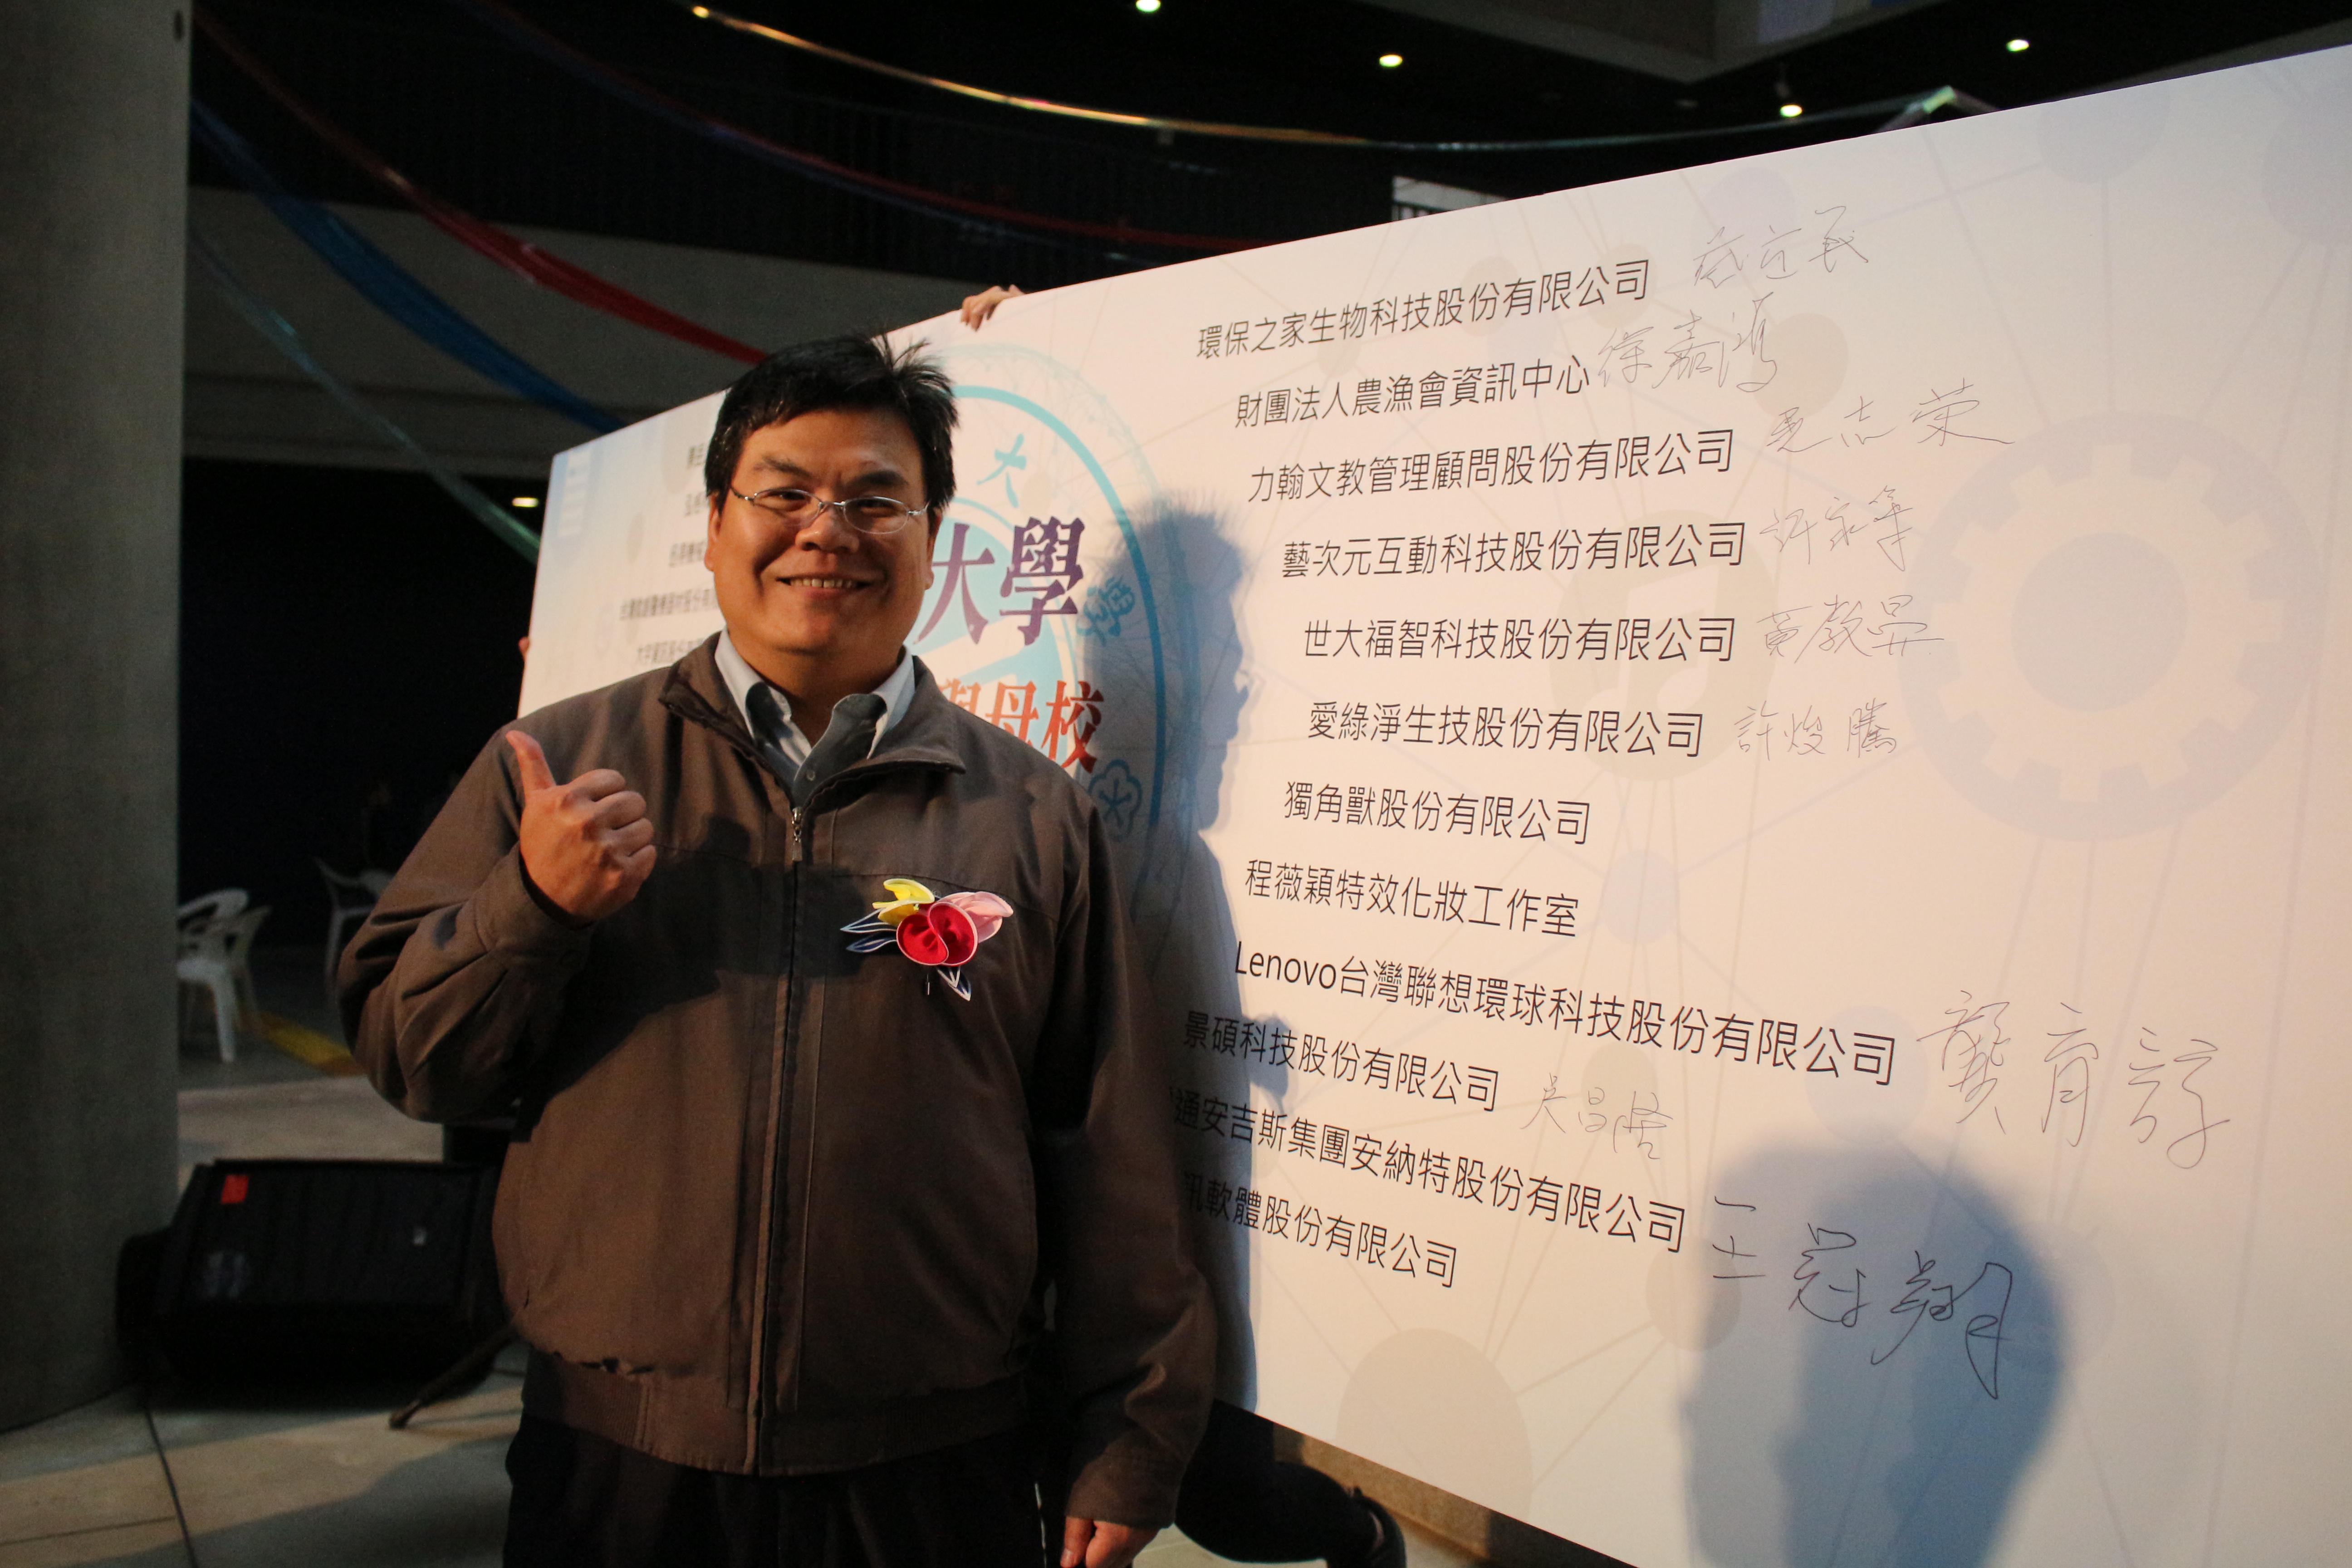 大
大學
學
與母校
台灣微創醫療器材股份有限
環保之家生物科技股份有限公司
財團法人農漁會資訊中心 徐嘉鴻
力翰文教管理顧問股份有限公司 吳志荣
藝次元互動科技股份有限公司 許家華
世大福智科技股份有限公司 黃教晏
愛綠淨生技股份有限公司 許焌騰
獨角獸股份有限公司
程薇穎特效化妝工作室
Lenovo台灣聯想環球科技股份有限公司 龔育諄
景碩科技股份有限公司 吳昌恪
通安吉斯集團安納特股份有限公司 王冠翔
訊軟體股份有限公司